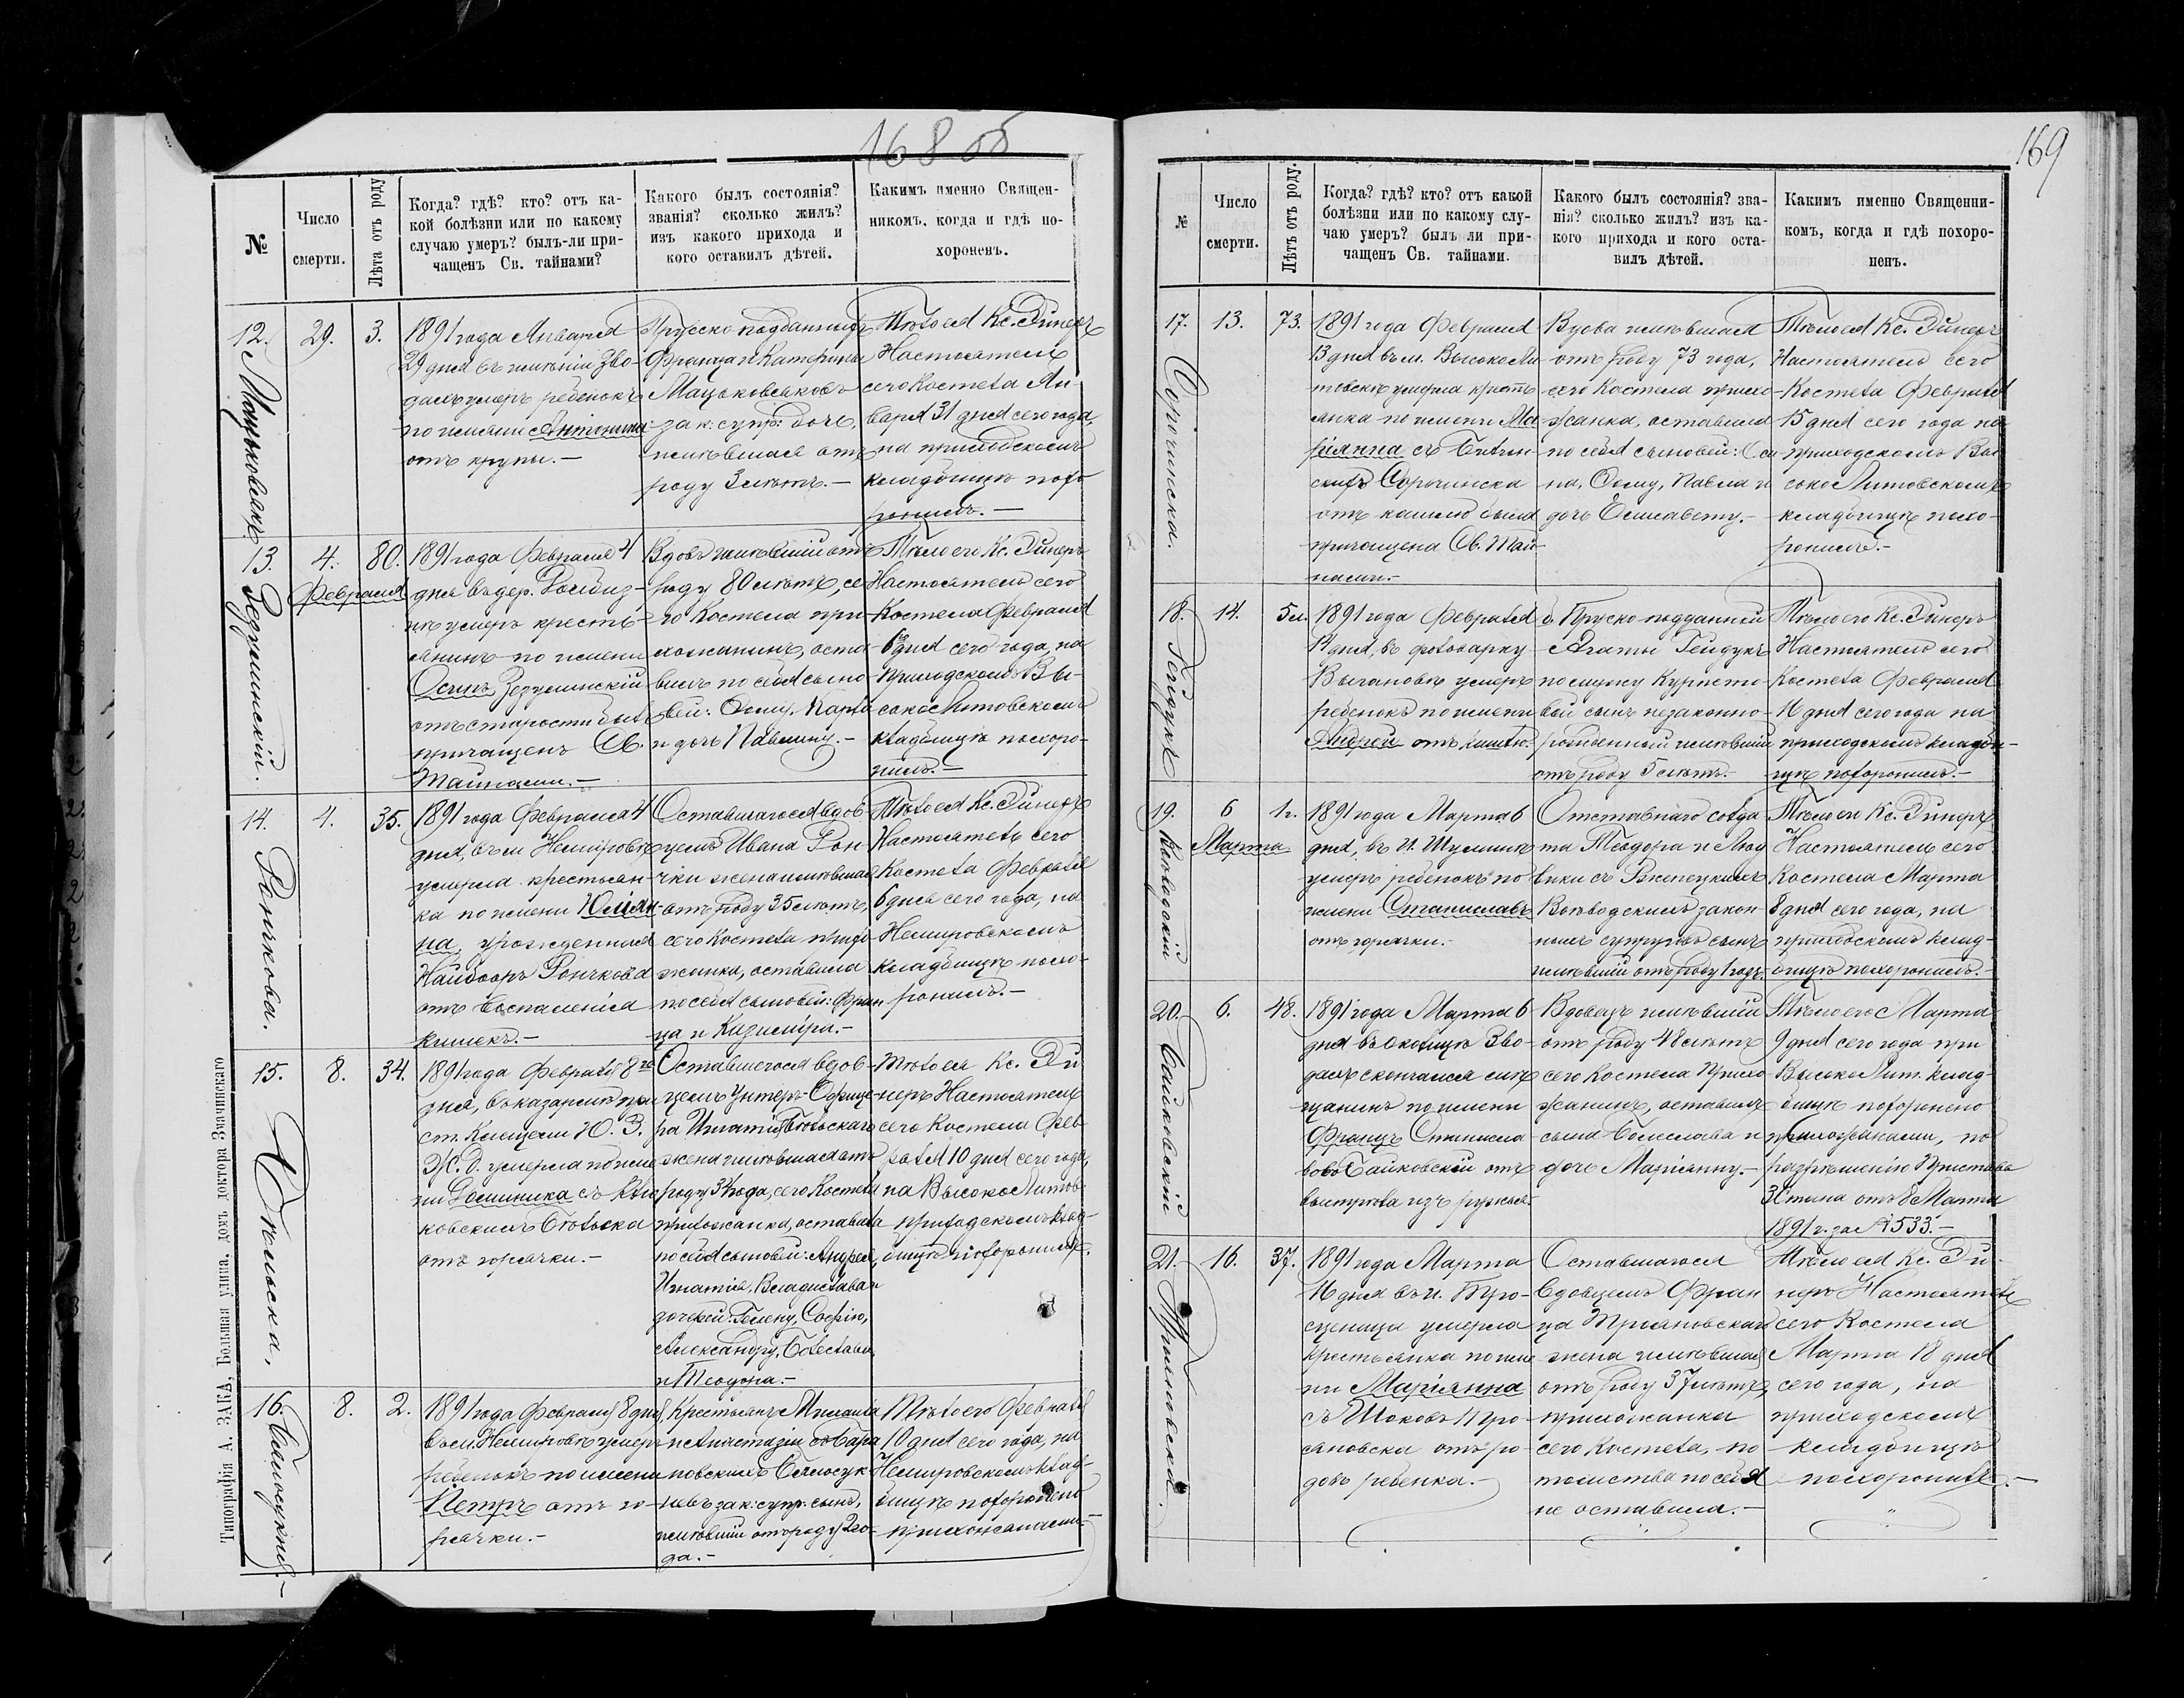 168 об
№
Число
смерти.
Лѣта отъ роду
Когда? гдѣ? кто? отъ ка-
кой болѣзни или по какому
случаю умеръ? былъ-ли при-
чащенъ Св. тайнами?
Какого былъ состоянія?
званія? сколько жилъ?
изъ какого прихода и
кого оставилъ дѣтей.
Какимъ именно Священ-
никомъ, когда и гдѣ по-
хороненъ.
12.
29.
3.
1891 года Января
29 дня въ имѣніи Зво-
дахъ умеръ ребенокъ
по имени Антонина
отъ крупы.—
Прусско подданныхъ
Франца и Катерины
Мацьковьяковъ
зак: супр: дочь,
имѣвшая отъ
роду 3 лѣтъ.—
Тѣло ея Кс. Гинеръ
Настоятель
сего Костела Ян-
варя 31 дня сего года,
на приходскомъ
кладбищѣ похо-
ронилъ.—
13.
4.
Февраля
80.
1891 года Февраля 4
дня въ дер.
нѣ умеръ кресть-
янинъ по имени
Осипъ Зезулинскій
отъ старости былъ
причащенъ Св.
Тайнами.—
Вдовъ имѣвшій отъ
роду 80 лѣтъ, се-
го Костела при-
хожанинъ, оста-
вилъ по себѣ сыно-
вей: Фому, Карла
и дочь Павлину.—
Тѣло его Кс. Гинеръ
Настоятель сего
Костела Февраля
6 дня сего года, на
приходскомъ Вы-
соко Литовскомъ
кладбищѣ похоро-
нилъ.—
14.
Рончкова.
4.
35.
1891 года Февраля 4
дня, въ м. Немировѣ
умерла крестьян-
ка по имени Юліян-
на, урожденная
Найдооръ Рончкова
отъ воспаленія
кишекъ.—
Оставшагося вдов-
цемъ Ивана Рон-
чки жена имѣвшая
отъ роду 35 лѣтъ,
сего Костела прихо-
жанка, оставила
по себѣ сыновей: Фран
ца и Казиміра.—
Тѣло ея Кс. Гинеръ
Настоятель сего
Костела Февраля
6 дня сего года, на
Немировскомъ
кладбищѣ похо-
ронилъ.—
15.
Бѣльска,
8.
34.
1891 года Февраля 8го
дня, въ казармѣ при
ст. Клещели Ю. З.
Ж. Д. умерла по име
ни Доминика съ
ковскихъ Бѣльска
отъ горячки.—
Оставшегося вдов-
цемъ Унтеръ-Офице-
ра Игнатія Бѣльскаго
жена имѣвшая отъ
роду 34 года, сего Костела
прихожанка, оставила
по себѣ сыновей: Андрея,
Игнатія, Владислава и
дочерей: Гелену, Софію,
Александру, Болеслава,
и Теодора.—
Тѣло ея Кс. Ги
неръ Настоятель
сего Костела Фев
раля 10 дня сего года,
на Высоко Литов-
приходскомъ клад-
бищѣ похоронилъ.
16.
8.
2.
1891 года Февраля 8 дня
въ м. Немировѣ умеръ
ребенокъ по имени
Петръ отъ го-
рячки.—
Крестьянъ Михаила
и Анастазіи
зак: супр: сынъ,
имѣвшій отъ роду 2 го-
да.—
Тѣло его Февраля
10 дня сего года, на
Немировскомъ клад-
бищѣ похоронено
прихожанами.—
Типографія А. ЗАКА, Большая улица, домъ доктора Змачинскаго
169
№
Число
смерти.
Лѣтъ отъ роду.
Когда? гдѣ? кто? отъ какой
болѣзни или по какому слу-
чаю умеръ? былъ ли при-
чащенъ Св. тайнами.
Какого былъ состоянія? зва-
нія? сколько жилъ? изъ ка-
кого прихода и кого оста-
вилъ дѣтей.
Какимъ именно Священни-
комъ, когда и гдѣ похоро-
ненъ.
17.
Сорочинска.
13.
73.
1891 года Февраля
13 дня въ м. Высоко Ли
товскѣ умерла кресть
янка по имени Ма
ріянна съ
скихъ Сорочинска
отъ кашлю была
причащена Св. Тай-
нами.—
Вдова имѣвшая
отъ роду 73 года,
сего Костела прихо-
жанка, оставила
по себѣ сыновей: Оси
па, Фому, Павла и
дочь Елисавету.—
Тѣло ея Кс. Гинеръ
Настоятель сего
Костела Февраля
15 дня сего года на
приходскомъ Вы
соко Литовскомъ
кладбищѣ похо-
ронилъ.—
18.
Гейдукъ
14.
5 л.
1891 года Февраля
14 дня, въ фольварку
Вычановѣ умеръ
ребенокъ по имени
Андрей отъ кашлю.
Прусско подданной
Агаты Гейдукъ
по мужу
вой сынъ незаконно-
рожденный имѣвшій
отъ роду 5 лѣтъ.—
Тѣло его Кс. Гинеръ
Настоятель сего
Костела Февраля
16 дня сего года на
приходскомъ кладби-
щѣ похоронилъ.—
19.
6
Марта
1 г.
1891 года Марта 6
дня, въ и.
умеръ ребенокъ по
имени Станиславъ
отъ горячки.
Отставнаго солда
та Теодора и Лю
вики съ Рженецкихъ
Воеводскихъ закон-
ныхъ супруговъ сынъ
имѣвшій отъ роду 1 годъ.
Тѣло его Кс. Гинеръ
Настоятель сего
Костела Марта
8 дня сего года, на
приходскомъ клад-
бищѣ похоронилъ.—
20.
Байковскій
6.
48.
1891 года Марта 6
дня въ околицѣ Зво-
дахъ скончался мѣ
щанинъ по имени
Францъ Станисла
вовъ Байковскій отъ
выстрѣла изъ ружья.
Вдовецъ имѣвшій
отъ роду 48 лѣтъ
сего Костела прихо-
жанинъ, оставилъ
сына Болеслава и
дочь Маріянну.—
Тѣло его Марта
9 дня сего года при
Высоко Лит. клад-
бищѣ похоронено
прихожанами, по
разрѣшенію Пристава
3 Стана отъ 8 Марта
1891 г. за № 533.—
21.
16.
37.
1891 года Марта
16 дня въ и.
умерла
крестьянка по име
ни Маріянна
съ
отъ ро
довъ ребенка.—
Оставшагося
вдовцемъ Фран
ца
жена имѣвшая
отъ роду 37 лѣтъ,
прихожанка
сего Костела, по
томства по себѣ
не оставила.—
Тѣло ея Кс. Ги
неръ Настоятель
сего Костела
Марта 18 дня
сего года, на
приходскомъ
кладбищѣ
похоронилъ.—